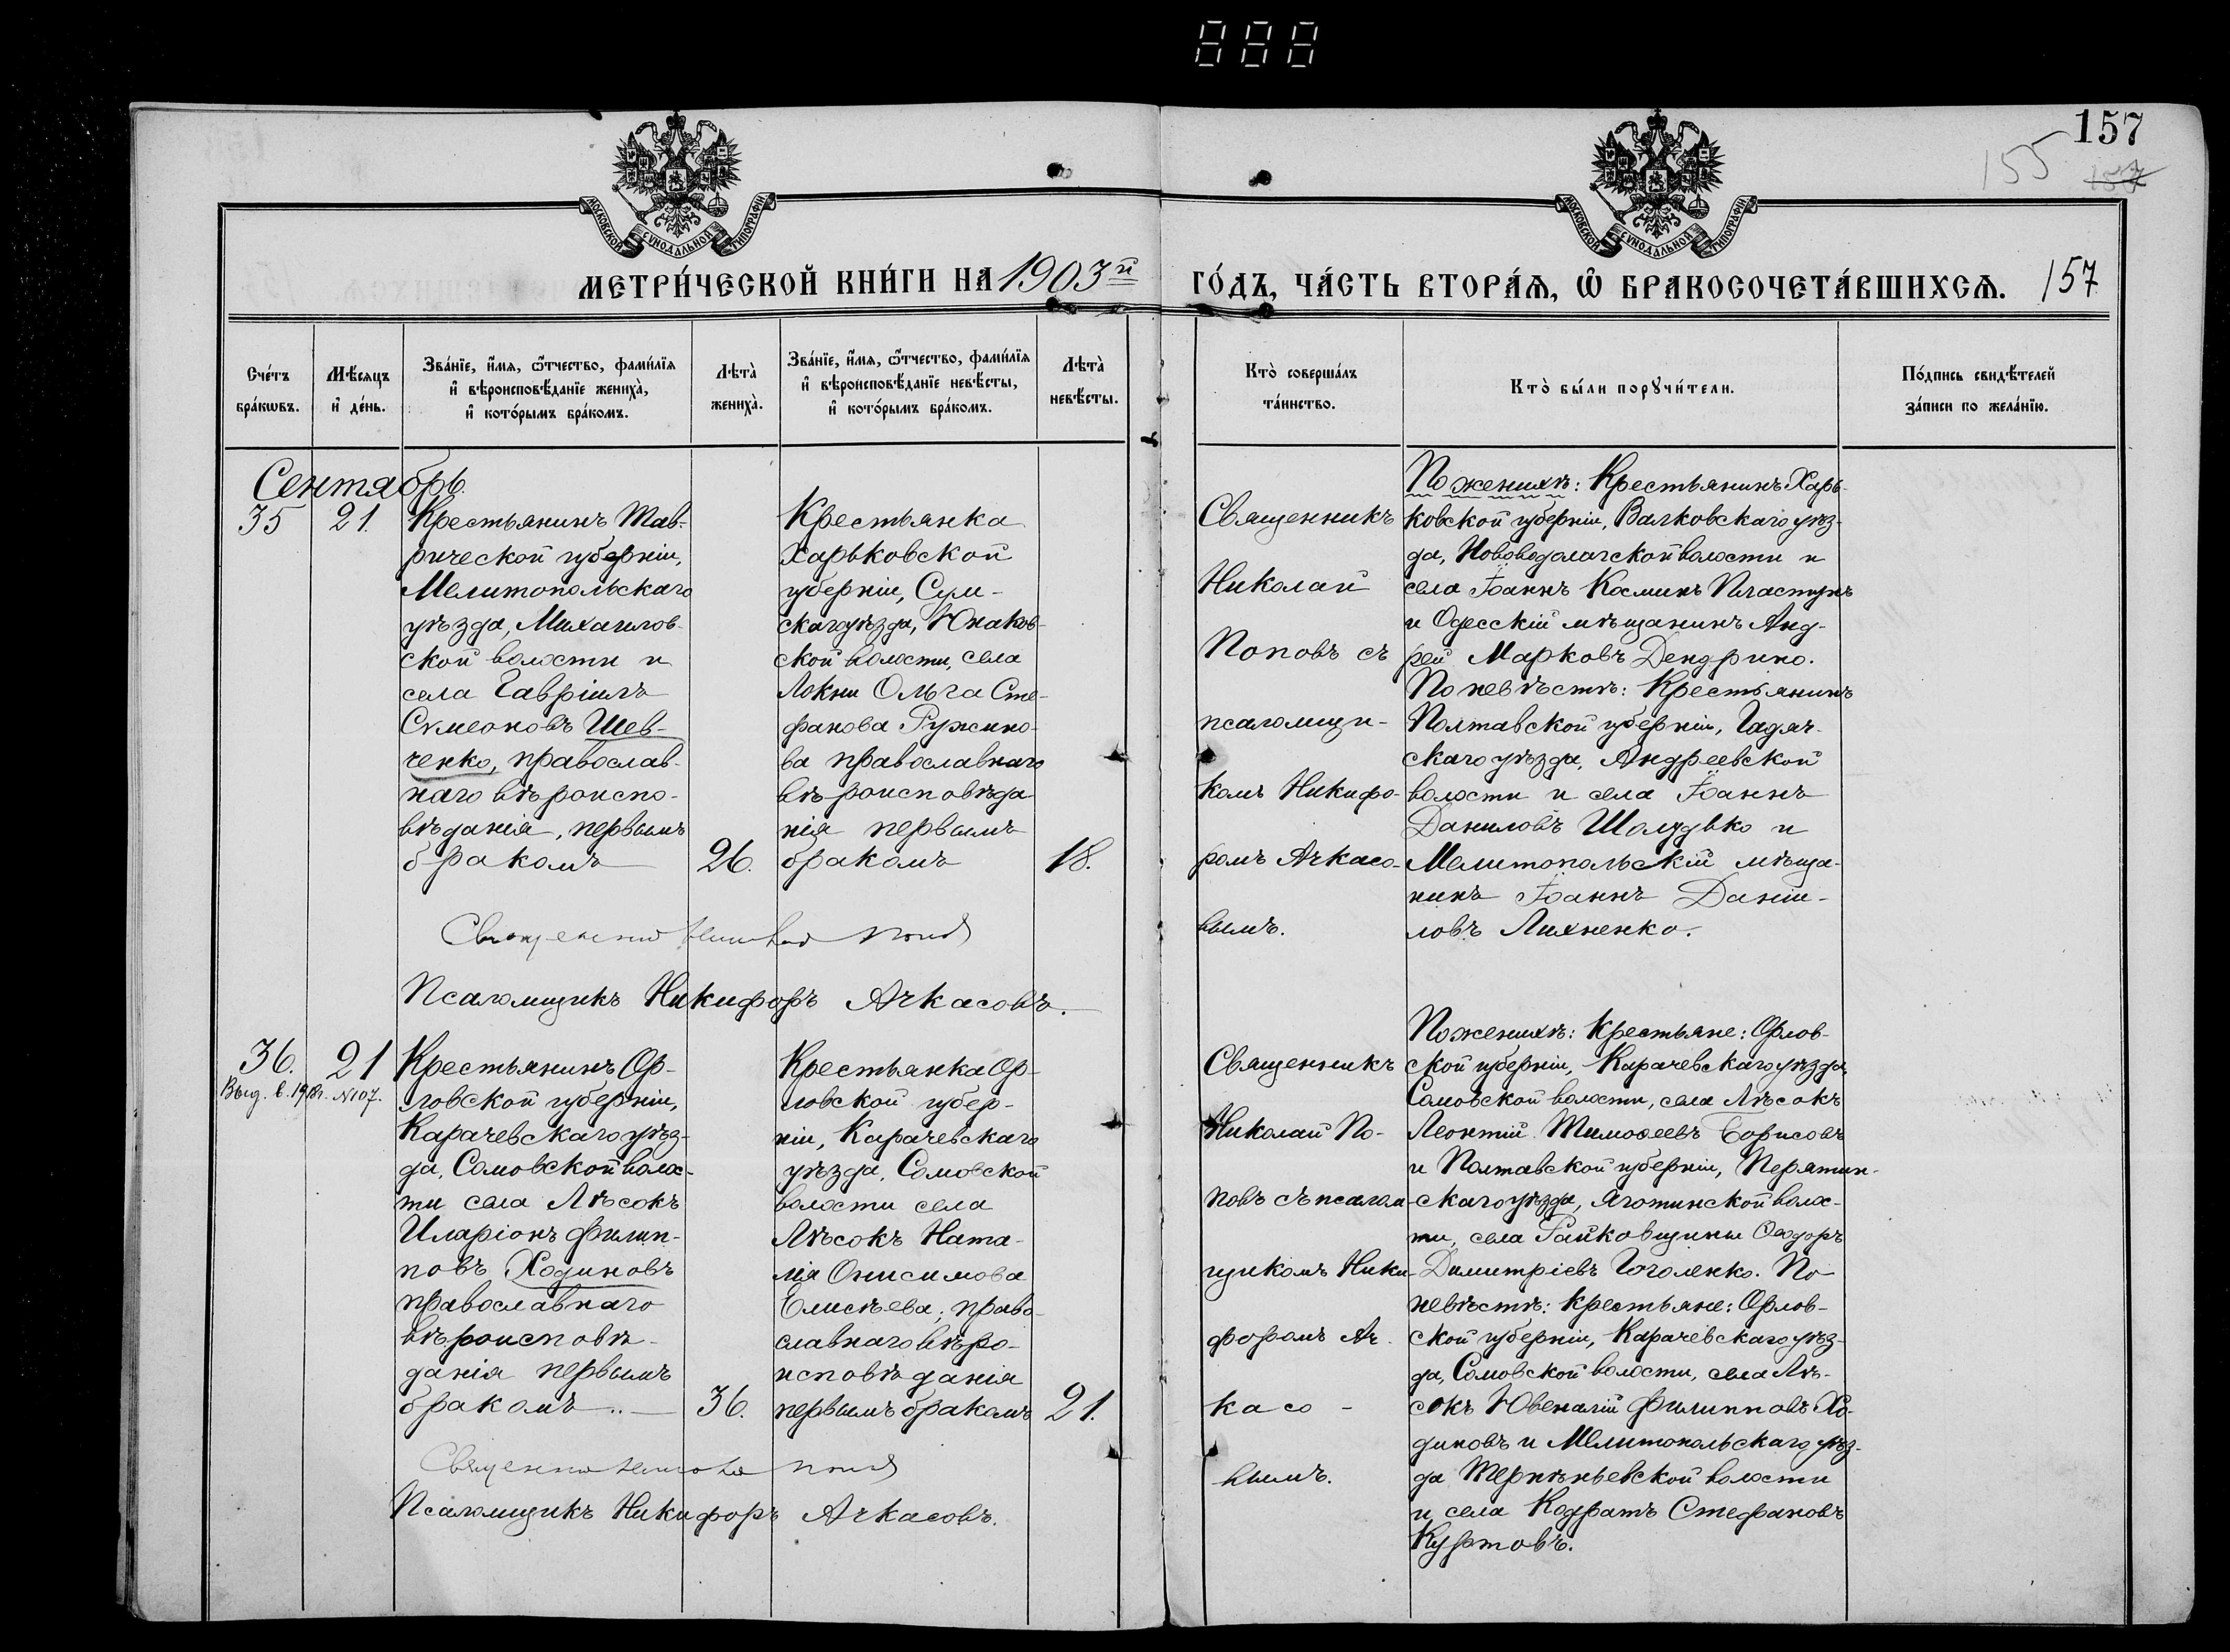 157
155
157
МОСКОВСКОЙ СѴНОДАЛЬНОЙ ТИПОГРАФІИ
МОСКОВСКОЙ СѴНОДАЛЬНОЙ ТИПОГРАФІИ
МЕТРИ́ЧЕСКОЙ КНИ́ГИ НА 1903й
ГО́ДЪ, ЧА́СТЬ ВТОРА́Ѧ, Ѽ БРАКОСОЧЕТА́ВШИХСѦ. 157
Сче́тъ
бра́кѡвъ.
Мѣ́сѧцъ
и҆ де́нь.
Зва́нїе, и҆́мѧ, ѻ҆́тчество, фами́лїѧ
и҆ вѣроисповѣ́данїе жениха̀,
и҆ кото́рымъ бра́комъ.
Лѣта̀
жениха̀.
Зва́нїе, и҆́мѧ, ѻ҆́тчество, фами́лїѧ
и҆ вѣроисповѣ́данїе невѣ́сты,
и҆ кото́рымъ бра́комъ.
Лѣта̀
невѣ́сты.
Кто̀ соверша́лъ
та́инство.
Кто̀ бы́ли порꙋчи́тели.
По́дпись свидѣ́телей
за́писи по жела́нїю.
Сентябрь.
35
21.
Крестьянинъ Тав-
рической губерніи,
Мелитопольскаго
уѣзда, Михайлов-
ской волости и
села Гавріилъ
Сѵмеоновъ Шев-
ченко, православ-
наго вѣроиспо-
вѣданія, первымъ
бракомъ
26.
Крестьянка
Харьковской
губерніи, Сум-
скаго уѣзда, Юнаков-
ской волости, села
Локни Ольга Сте-
фанова Ружино-
ва православнаго
вѣроисповѣда-
нія первымъ
бракомъ
18.
Священникъ
Николай
Поповъ съ
псаломщи-
комъ Никифо-
ромъ Ачкасо-
вымъ.
По женихѣ: Крестьянинъ Харь-
ковской губерніи, Валковскаго уѣз-
да, Нововодолагской волости и
села Іоаннъ Косминъ Пластунъ
и Одесскій мѣщанинъ Анд-
рей Марковъ Дендрино.
По невѣстѣ: Крестьянинъ
Полтавской губерніи, Гадяч-
скаго уѣзда, Андреевской
волости и села Іоаннъ
Даниловъ Шолудько и
Мелитопольскій мѣща-
нинъ Іоаннъ Даніи-
ловъ Лихненко.
Священникъ Николай Поповъ
Псаломщикъ Никифоръ Ачкасовъ.
36.
21
Выд. в. 19 г. №107.
Крестьянинъ Ор-
ловской губерніи,
Карачевскаго уѣз-
да, Сомовской волос-
ти села Лѣсокъ
Иларіонъ Филип-
повъ Ходиновъ
православнаго
вѣроисповѣ-
данія первымъ
бракомъ..
36.
Крестьянка Ор-
ловской губер-
ніи, Карачевскаго
уѣзда, Сомовской
волости села
Лѣсокъ Ната-
лія Онисимова
Елисѣева; право-
славнаго вѣро-
исповѣданія
первымъ бракомъ
21.
Священникъ
Николай По-
повъ съ псалом-
щикомъ Ники-
форомъ Ач-
касо-
вымъ.
По женихѣ: крестьяне: Орлов-
ской губерніи, Карачевскаго уѣзда,
Сомовской волости, села Лѣсокъ
Леонтій Тимоѳеевъ Борисовъ
и Полтавской губерніи, Пирятин-
скаго уѣзда, Яготинской волос-
ти, села Райковщины Ѳеодоръ
Димитріевъ Гоголенко. По
невѣстѣ: крестьяне: Орлов-
ской губерніи, Карачевскаго уѣз-
да, Сомовской волости, села Лѣ-
сокъ Ювеналій Филипповъ Хо-
диновъ и Мелитопольскаго уѣз-
да Терпѣньевской волости
и села Кодратъ Стефановъ
Куртовъ.
Священникъ Николай Поповъ
Псаломщикъ Никифоръ Ачкасовъ.